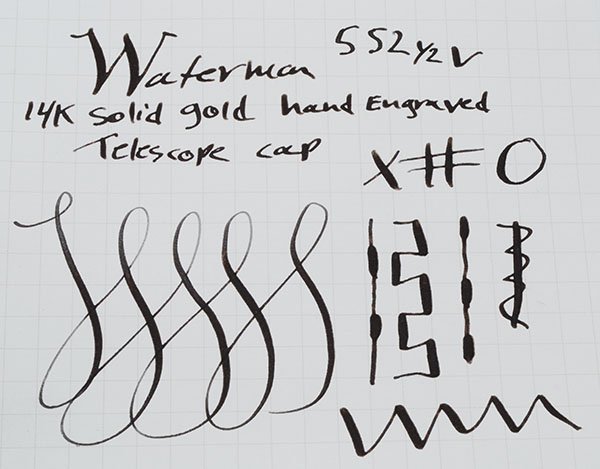 Waterman 552 1/2 V
14K Solid gold hand Engraved
Telescope cap
X # O